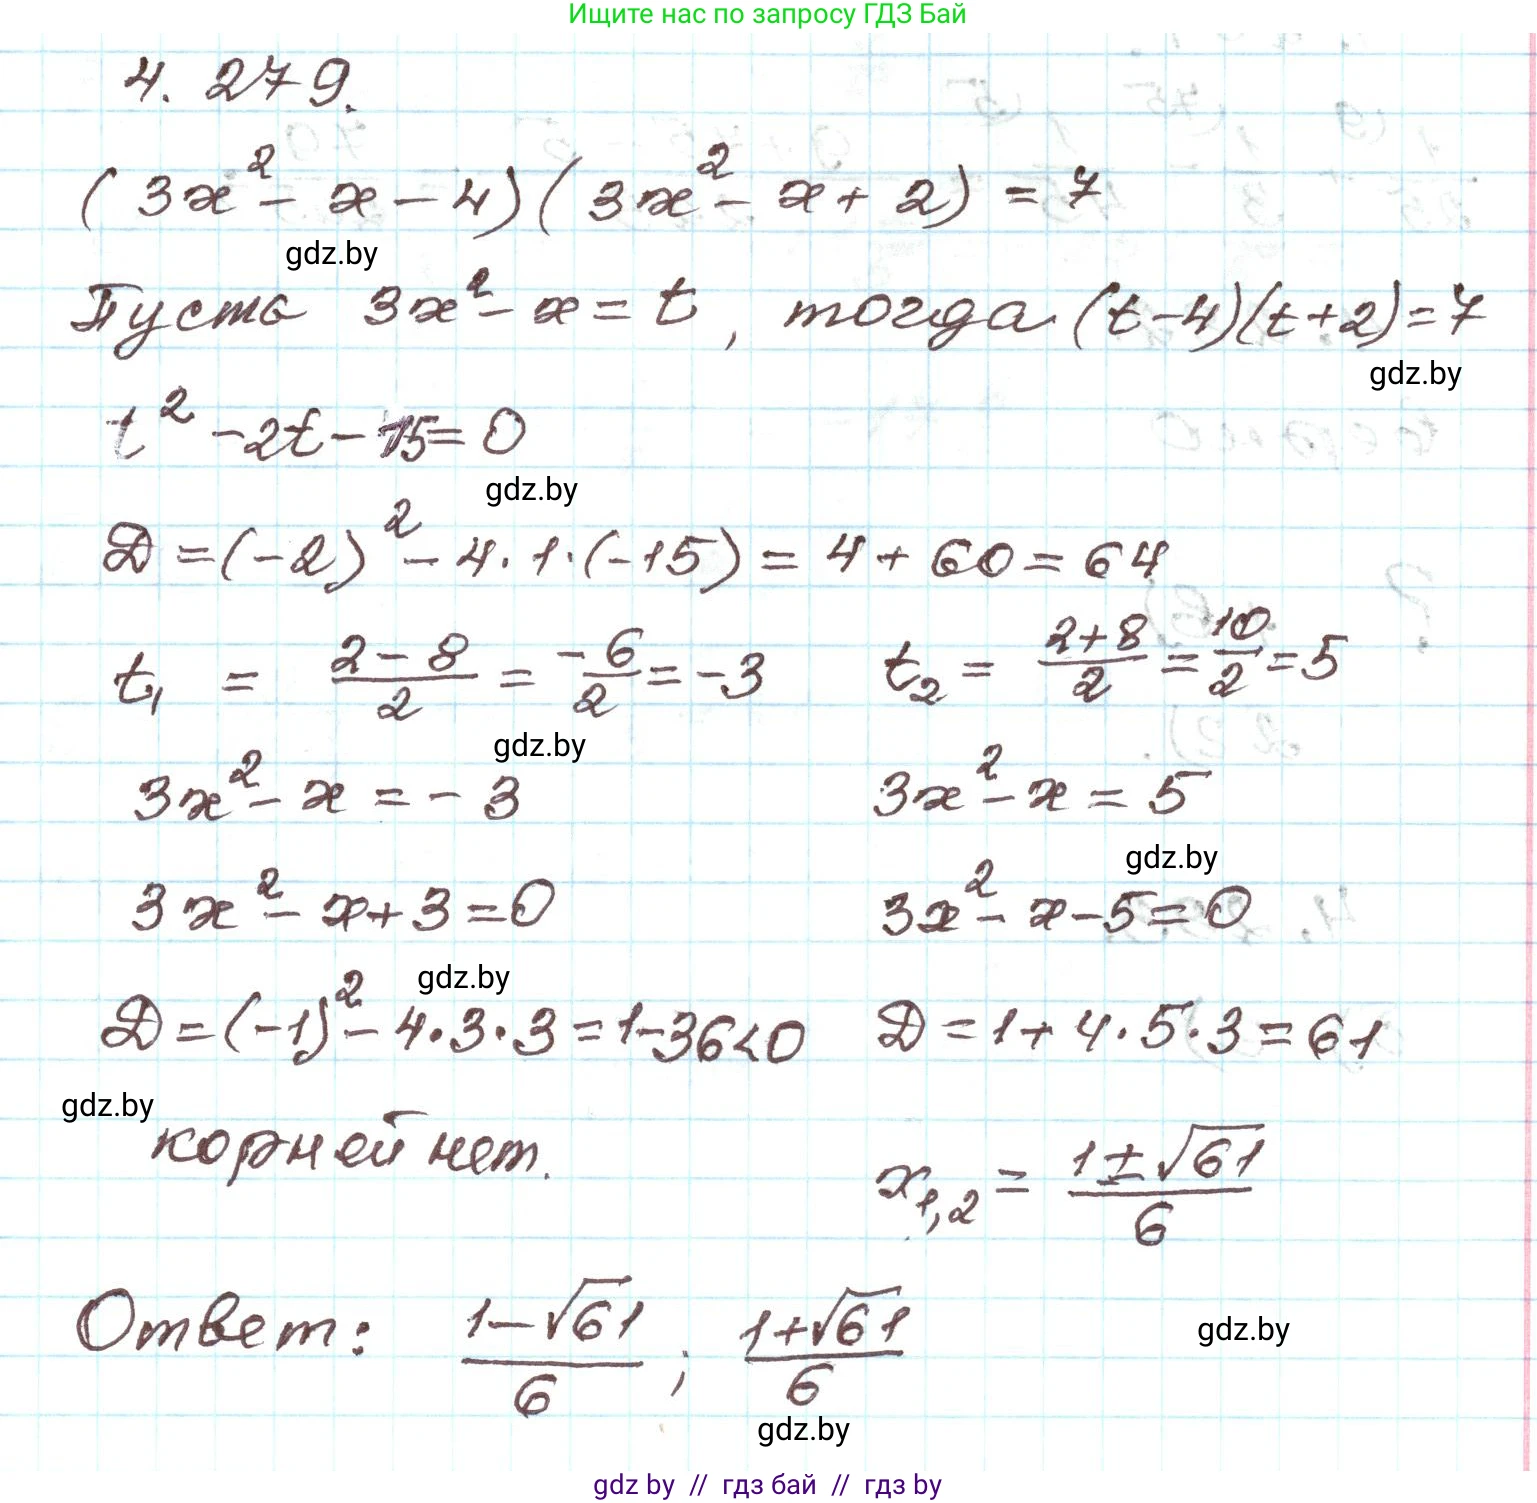 Ищите нас по запросу ГДЗ Бай
4. 279.
(3x² - x - 4)(3x² - x + 2) = 7
gdz.by
Пусть 3x² - x = t, тогда (t - 4)(t + 2) = 7
gdz.by
t² - 2t - 15 = 0
gdz.by
D = (-2)² - 4·1·(-15) = 4 + 60 = 64
t₁ = (2 - 8)/2 = -6/2 = -3 t₂ = (2 + 8)/2 = 10/2 = 5
gdz.by
3x² - x = -3 3x² - x = 5
gdz.by
3x² - x + 3 = 0 3x² - x - 5 = 0
gdz.by
D = (-1)² - 4·3·3 = 1 - 36 < 0 D = 1 + 4·5·3 = 61
gdz.by
корней нет. x₁,₂ = (1 ± √61)/6
Ответ: (1 - √61)/6 ; (1 + √61)/6
gdz.by
gdz.by
gdz by // гдз бай // гдз by